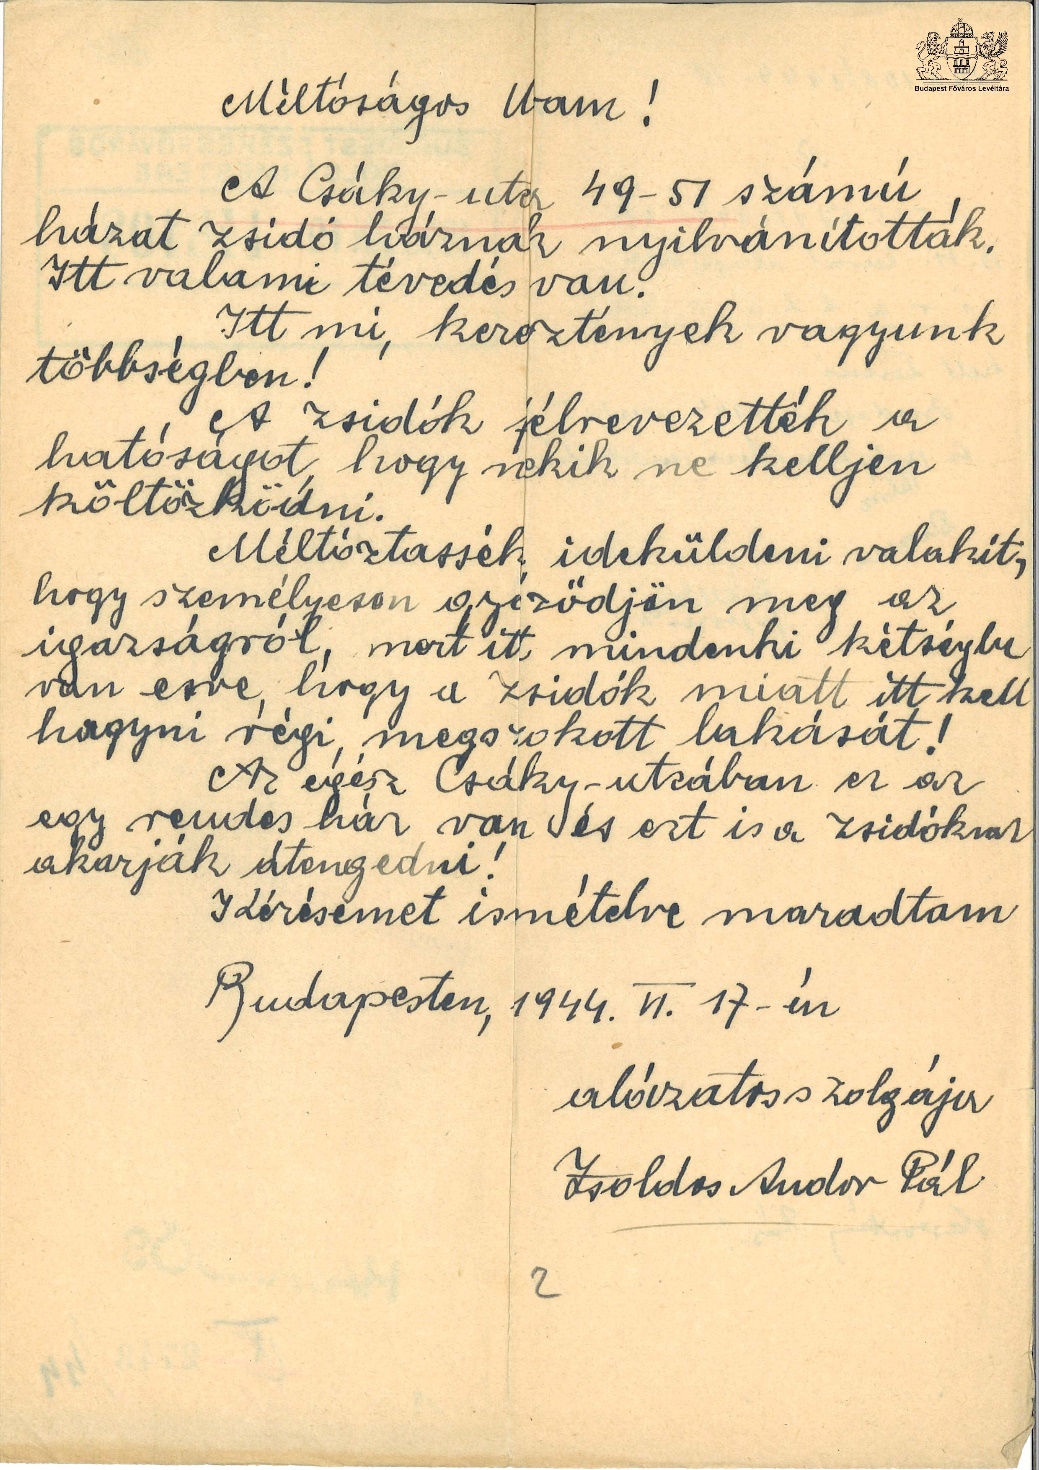 Budapest Főváros Levéltára
Méltóságos Uram!
A Csáky-utca 49-51 számú
házat zsidó háznak nyilvánították.
Itt valami tévedés van.
Itt mi, keresztények vagyunk
többségben!
A zsidók félrevezették a
hatóságot, hogy nekik ne kelljen
költözködni.
Méltóztassék ideküldeni valakit,
hogy személyesen győződjön meg az
igazságról, mert itt mindenki kétségbe
van esve, hogy a zsidók miatt itt kell
hagyni régi, megszokott lakását!
Az egész Csáky-utcában ez az
egy rendes ház van és ezt is a zsidóknak
akarják átengedni!
Kérésemet ismételve maradtam
Budapesten, 1944. VI. 17-én
alázatos szolgája
Zsoldos Andor Pál
2